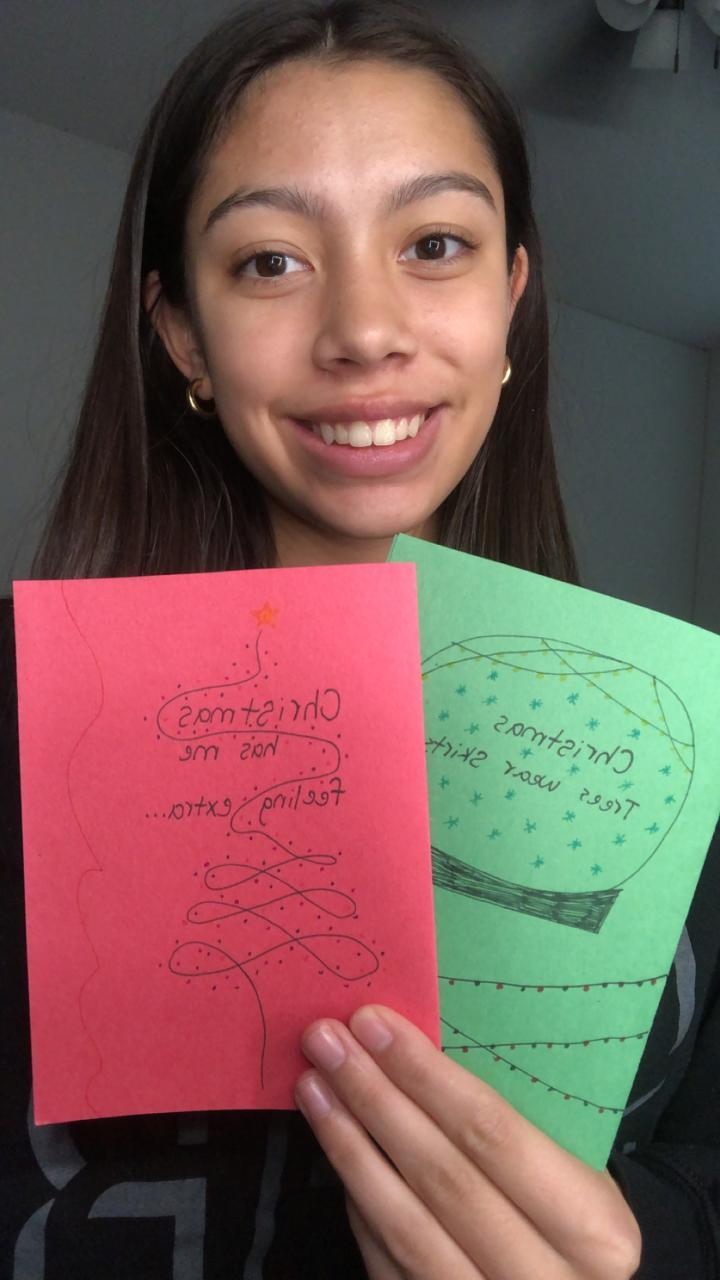 Christmas
has me
feeling extra...
Christmas
Trees wear skirts